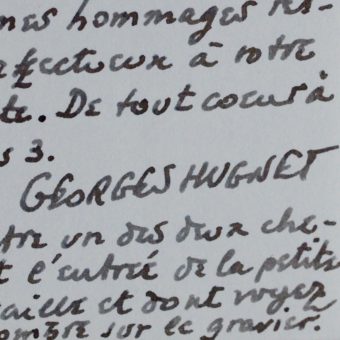 mes hommages res-
pectueux à votre
te. De tout coeur à
s 3.
GEORGES HUGNET
tre un des deux che-
t l'entrée de la petite
aille et dont voyez
ombre sur le gravier.